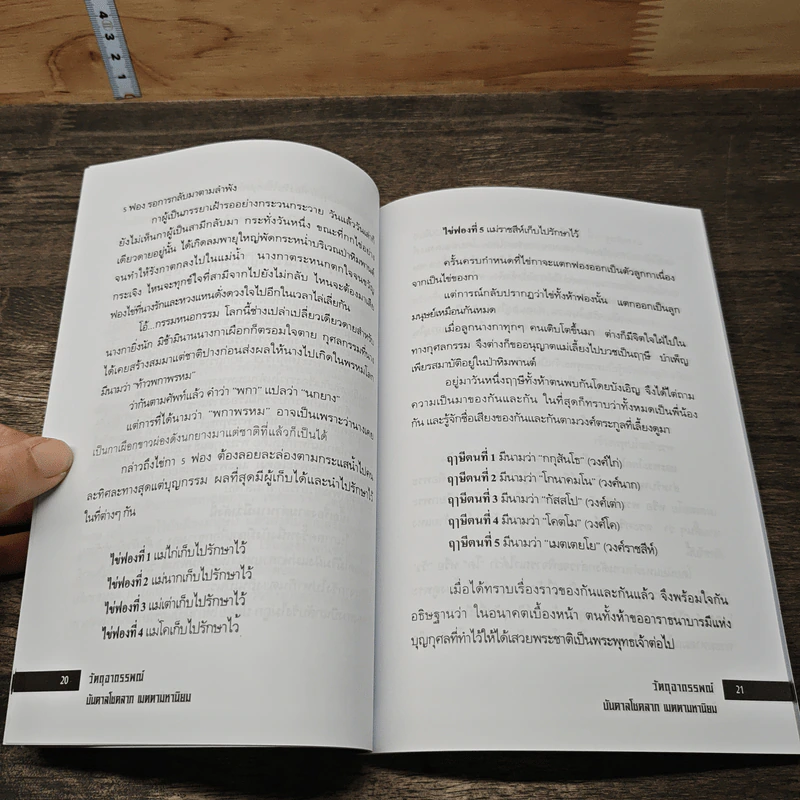 4
3
2
1
5 ฟอง รอการกลับมาตามลำพัง
กาผู้เป็นภรรยาเฝ้ารออย่างกระวนกระวาย วันแล้ววันเล่าก็
ยังไม่เห็นกาผู้เป็นสามีกลับมา กระทั่งวันหนึ่ง ขณะที่กกไข่อย่าง
เดียวดายอยู่นั้น ได้เกิดลมพายุใหญ่พัดกระหน่ำบริเวณป่าหิมพานต์
จนทำให้รังกาตกลงไปในแม่น้ำ นางกาตระหนกตกใจจนขวัญ
กระเจิง ไหนจะทุกข์ใจที่สามีจากไปยังไม่กลับ ไหนจะต้องมาเสีย
ฟองไข่ที่นางรักและหวงแหนดั่งดวงใจไปอีกในเวลาไล่เลี่ยกัน
โอ้...กรรมหนอกรรม โลกนี้ช่างเปล่าเปลี่ยวเดียวดายสำหรับ
นางกายิ่งนัก มิช้ามินานนางกาเผือกก็ตรอมใจตาย กุศลกรรมที่นาง
ได้เคยสร้างสมมาแต่ชาติปางก่อนส่งผลให้นางไปเกิดในพรหมโลก
มีนามว่า "ท้าวพกาพรหม"
ว่ากันตามศัพท์แล้ว คำว่า "พกา" แปลว่า "นกยาง"
แต่การที่ได้นามว่า "พกาพรหม" อาจเป็นเพราะว่านางเคย
เป็นกาเผือกขาวผ่องดังนกยางมาแต่ชาติที่แล้วก็เป็นได้
กล่าวถึงไข่กา 5 ฟอง ต้องลอยละล่องตามกระแสน้ำไปคน
ละทิศละทางสุดแต่บุญกรรม ผลที่สุดมีผู้เก็บได้และนำไปรักษาไว้
ในที่ต่างๆ กัน
ไข่ฟองที่ 1 แม่ไก่เก็บไปรักษาไว้
ไข่ฟองที่ 2 แม่นาคเก็บไปรักษาไว้
ไข่ฟองที่ 3 แม่เต่าเก็บไปรักษาไว้
ไข่ฟองที่ 4 แม่โคเก็บไปรักษาไว้
20 วัตถุอาถรรพณ์
บันดาลโชคลาภ เมตตามหานิยม
ไข่ฟองที่ 5 แม่ราชสีห์เก็บไปรักษาไว้
ครั้นครบกำหนดที่ไข่กาจะแตกฟองออกเป็นตัวลูกกาเนื่อง
จากเป็นไข่ของกา
แต่การณ์กลับปรากฏว่าไข่ทั้งห้าฟองนั้น แตกออกเป็นลูก
มนุษย์เหมือนกันหมด
เมื่อลูกนางกาทุกๆ คนเติบโตขึ้นมา ต่างก็มีจิตใจใฝ่ไปใน
ทางกุศลกรรม จึงต่างก็ขออนุญาตแม่เลี้ยงไปบวชเป็นฤๅษี บำเพ็ญ
เพียรสมาบัติอยู่ในป่าหิมพานต์
อยู่มาวันหนึ่งฤๅษีทั้งห้าตนพบกันโดยบังเอิญ จึงได้ไต่ถาม
ความเป็นมาของกันและกัน ในที่สุดก็ทราบว่าทั้งหมดเป็นพี่น้อง
กัน และรู้จักชื่อเสียงของกันและกันตามวงศ์ตระกูลที่เลี้ยงดูมา
ฤๅษีตนที่ 1 มีนามว่า "กกุสันโธ" (วงศ์ไก่)
ฤๅษีตนที่ 2 มีนามว่า "โกนาคมโน" (วงศ์นาค)
ฤๅษีตนที่ 3 มีนามว่า "กัสสโป" (วงศ์เต่า)
ฤๅษีตนที่ 4 มีนามว่า "โคตโม" (วงศ์โค)
ฤๅษีตนที่ 5 มีนามว่า "เมตเตยโย" (วงศ์ราชสีห์)
เมื่อได้ทราบเรื่องราวของกันและกันแล้ว จึงพร้อมใจกัน
อธิษฐานว่า ในอนาคตเบื้องหน้า ตนทั้งห้าขออาราธนาบารมีแห่ง
บุญกุศลที่ทำไว้ให้ได้เสวยพระชาติเป็นพระพุทธเจ้าต่อไป
วัตถุอาถรรพณ์ 21
บันดาลโชคลาภ เมตตามหานิยม